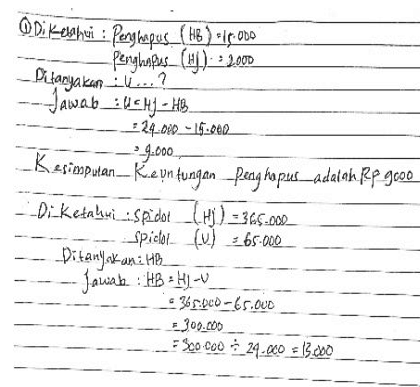 ① Diketahui : Penghapus (HB) = 15.000
Penghapus (HJ) = 2000
Ditanyakan : U...?
Jawab : U = HJ - HB
= 24.000 - 15.000
= 9.000
Kesimpulan Keuntungan Penghapus adalah Rp 9000
Diketahui : Spidol (HJ) = 365.000
spidol (U) = 65.000
Ditanyakan : HB
Jawab : HB = HJ - U
= 365.000 - 65.000
= 300.000
= 300.000 ÷ 24.000 = 13.000